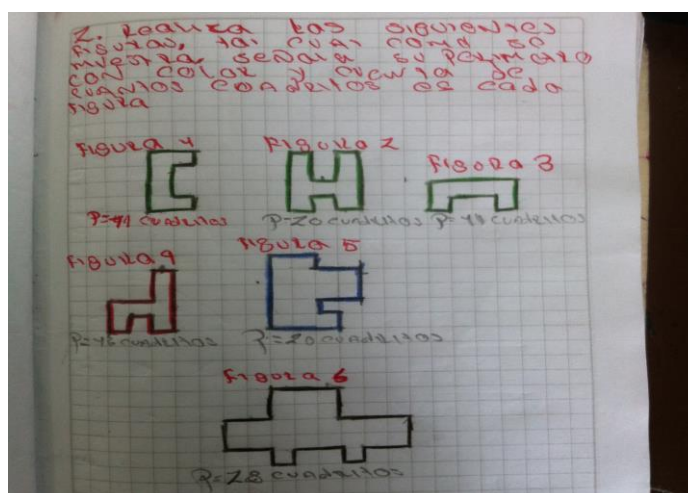 2. Realiza las siguientes
figuras, tal cual como se
muestra, señala su perímetro
con color y cuenta de
cuantos cuadritos es cada
figura
Figura 1
Figura 2
Figura 3
P=20 cuadritos
Figura 4
Figura 5
P=20 cuadritos
Figura 6
P=28 cuadritos